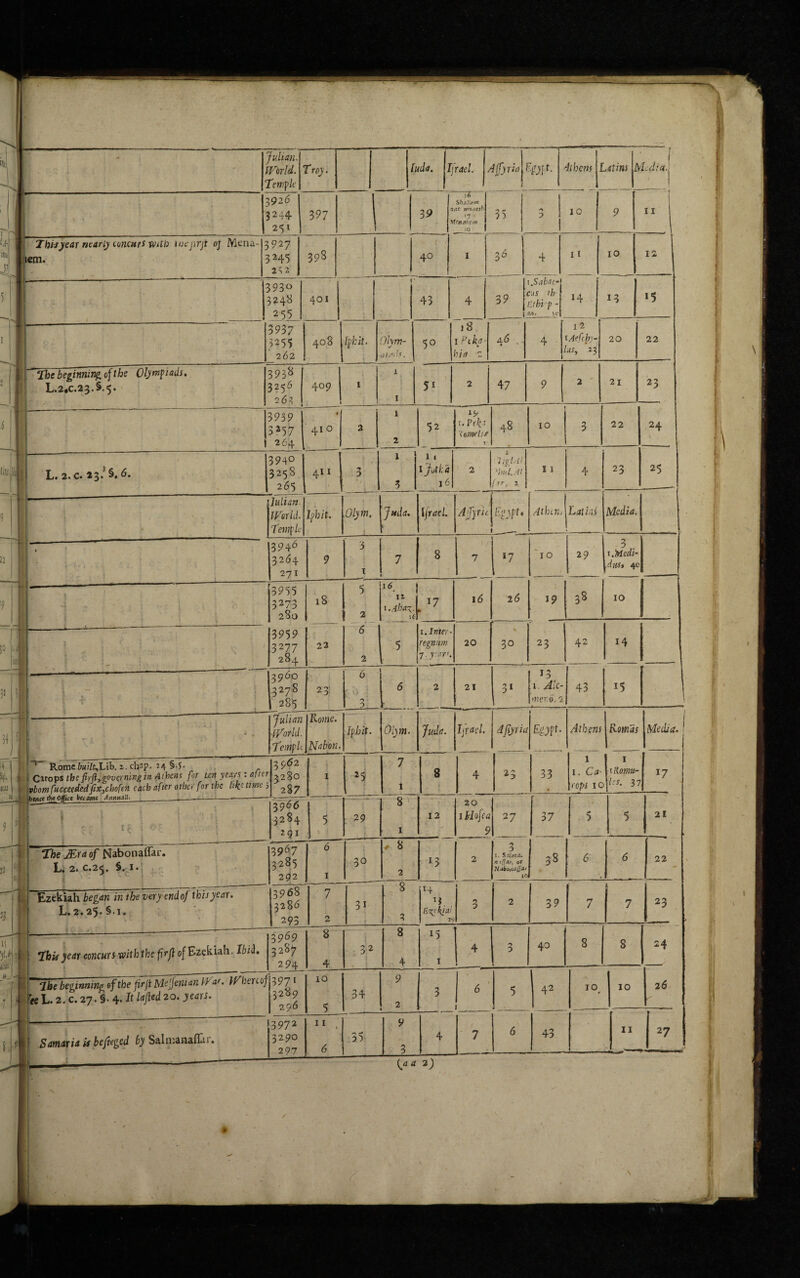 Julian. World. Temple | Troy. | Iuda. | Israel. | Assyria | Egypt. | Athens | Latins | Media.
3926 3244 251 | 397 | 39 | 16 17 Menahem 10 | 35 | 3 | 10 | 9 | 11
This year nearly concurs with the first of Mena-
iem. | 3927 3245 252 | 398 | 40 | 1 | 36 | 4 | 11 | 10 | 12
3930 3248 255 | 401 | 43 | 4 | 39 | 1.Sabac- | 14 | 13 | 15
3937 3255 262 | 408 | Iphit. | Olym- | 50 | 18 1 Peka hia 2 | 46 | 4 | 12 1.Aeschy- lus, 23 | 20 | 22
The beginning of the Olympiads.
L.2.c.23.§.5. | 3938 3256 263 | 409 | 1 | 1 1 | 51 | 2 | 47 | 9 | 2 | 21 | 23
3939 3257 264 | 410 | 2 | 1 2 | 52 | 19 | 48 | 10 | 3 | 22 | 24
L. 2. c. 23. §. 6. | 3940 3258 265 | 411 | 3 | 1 3 | 1 1 Jotha 16 | 2 | 11 | 4 | 23 | 25
Iulian World. Temple | Iphit. | Olym. | Juda. | Israel. | Assyria | Egypt. | Athens | Latins | Media.
3946 3264 271 | 9 | 3 1 | 7 | 8 | 7 | 17 | 10 | 29 | 3 1.Medi- dus, 40
3955 3273 280 | 18 | 5 2 | 16. 1.Ahaz. 16 | 17 | 16 | 26 | 19 | 38 | 10
3959 3277 284 | 22 | 6 2 | 5 | 1. Inter- regnum 7. years. | 20 | 30 | 23 | 42 | 14
3960 3278 285 | 23 | 6 3 | 6 | 2 | 21 | 31 | 13 1. Alc- | 43 | 15
Julian World. Temple | Rome. Nabon. | Iphit. | Olym. | Juda. | Israel. | Assyria | Egypt. | Athens | Romas | Media.
Rome built, Lib. 2. chap. 24 §.5.
Cirops the first, governing in Athens for ten years : after
whom succeeded six, chosen each after other for the like time;
hence the Office became Annuall. | 3962 3280 287 | 1 | 25 | 7 1 | 8 | 4 | 23 | 33 | 1 1. Ca- rops 10 | 1 1Romu- les. 37 | 17
3966 3284 291 | 5 | 29 | 8 1 | 12 | 20 1Hosea 9 | 27 | 37 | 5 | 5 | 21
The Æra of Nabonassar.
L. 2. c.25. §.1. | 3967 3285 292 | 6 1 | 30 | 8 2 | 13 | 2 | 3 | 38 | 6 | 6 | 22
Ezekiah began in the very end of this year.
L. 2. 25. §. 1. | 3968 3286 293 | 7 2 | 31 | 8 3 | 14 Ezekias | 3 | 2 | 39 | 7 | 7 | 23
This year concurs with the first of Ezekiah. Ibid. | 3969 3287 294 | 8 4 | 32 | 8 4 | 15 1 | 4 | 3 | 40 | 8 | 8 | 24
The beginning of the first Messenian War. Whereof
see L. 2. c. 27. §. 4. It lasted 20. years. | 3971 3289 296 | 10 5 | 34 | 9 2 | 3 | 6 | 5 | 42 | 10. | 10 | 26
Samaria is besieged by Salmanassar. | 3972 3290 297 | 11 6 | 35 | 9 3 | 4 | 7 | 6 | 43 | 11 | 27
(a a 2)